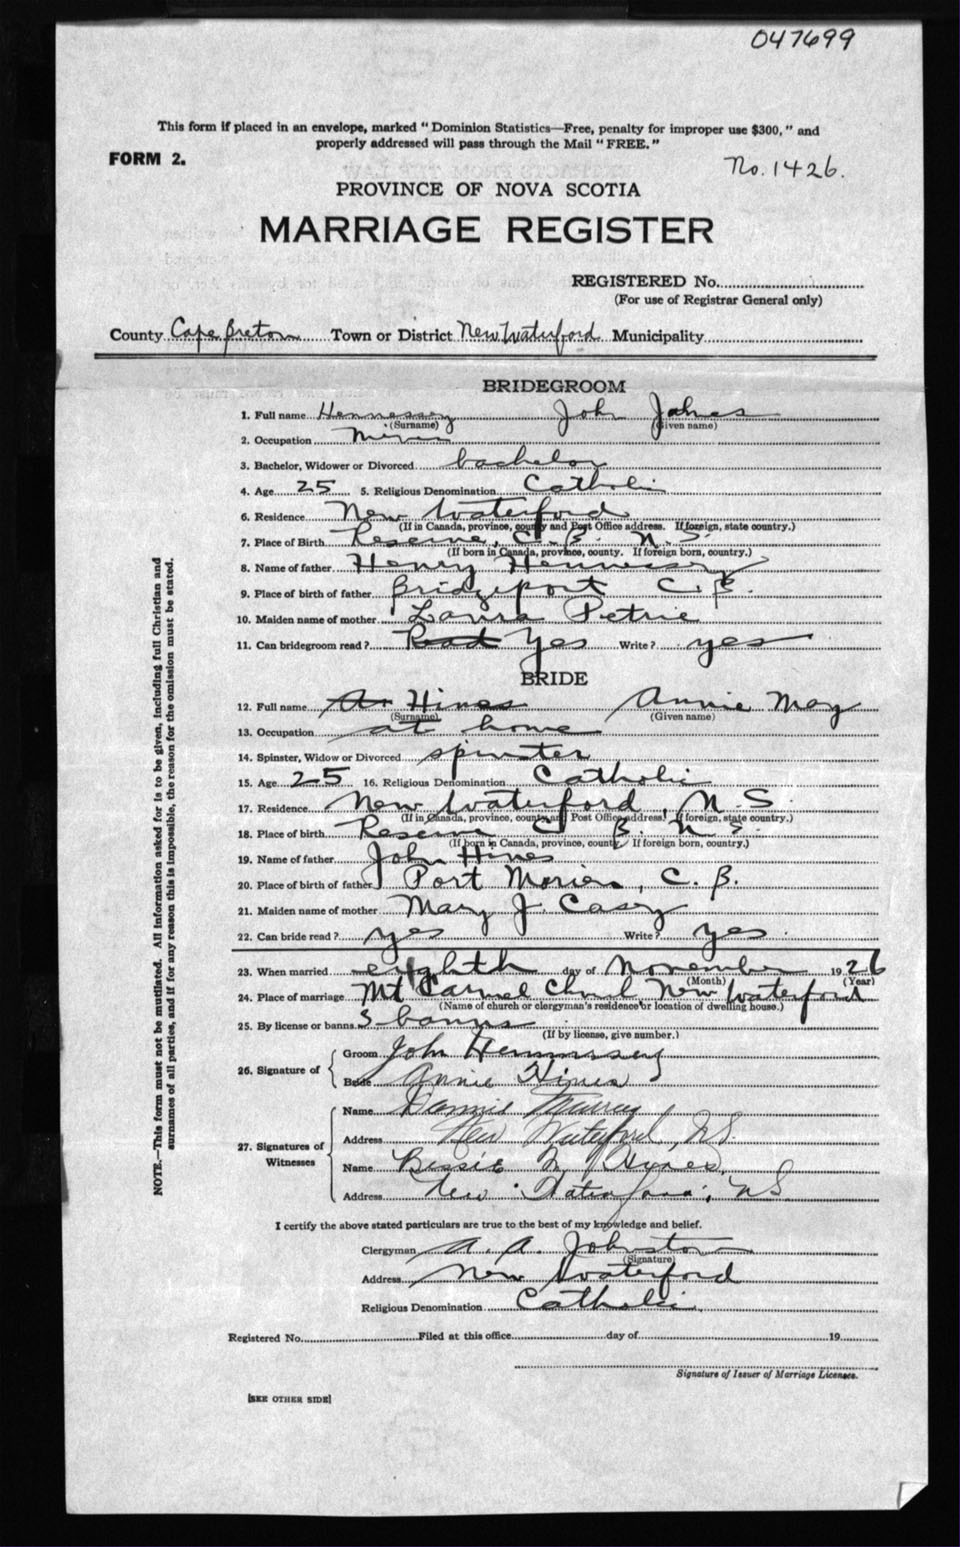 047699
This form if placed in an envelope, marked "Dominion Statistics—Free, penalty for improper use $300," and
properly addressed will pass through the Mail "FREE."
FORM 2.
No. 1426.
PROVINCE OF NOVA SCOTIA
MARRIAGE REGISTER
REGISTERED No.
(For use of Registrar General only)
County Cape Breton Town or District New Waterford Municipality
BRIDEGROOM
1. Full name Hennessey John James
(Surname) (Given name)
2. Occupation Miner
3. Bachelor, Widower or Divorced bachelor
4. Age 25 5. Religious Denomination Catholic
6. Residence New Waterford
(If in Canada, province, county and Post Office address. If foreign, state country.)
7. Place of Birth Reserve, C. B. N. S.
(If born in Canada, province, county. If foreign born, country.)
8. Name of father Henry Hennessey
9. Place of birth of father Bridgeport C. B.
10. Maiden name of mother Laura Petrie
11. Can bridegroom read? Read Yes Write? yes
BRIDE
12. Full name An Hines Annie May
(Surname) (Given name)
13. Occupation at home
14. Spinster, Widow or Divorced spinster
15. Age 25 16. Religious Denomination Catholic
17. Residence New Waterford, N. S.
(If in Canada, province, county and Post Office address. If foreign, state country.)
18. Place of birth Reserve C. B. N. S.
(If born in Canada, province, county. If foreign born, country.)
19. Name of father John Hines
20. Place of birth of father Port Morien, C. B.
21. Maiden name of mother Mary J. Casey
22. Can bride read? yes Write? yes
23. When married eighth day of November 1926
(Month) (Year)
24. Place of marriage Mt Carmel Church New Waterford
(Name of church or clergyman's residence or location of dwelling house.)
25. By license or banns 3 banns
(If by license, give number.)
26. Signature of
Groom John Hennessey
Bride Annie Hines
27. Signatures of Witnesses
Name Dannie Murray
Address New Waterford, N.S.
Name Bessie M. Hynes
Address New Waterford, NS
I certify the above stated particulars are true to the best of my knowledge and belief.
Clergyman A. A. Johnston
(Signature)
Address New Waterford
Religious Denomination Catholic
Registered No. Filed at this office day of 19
Signature of Issuer of Marriage Licenses.
[SEE OTHER SIDE]
NOTE.—This form must not be mutilated. All information asked for is to be given, including full Christian and
surnames of all parties, and if for any reason this is impossible, the reason for the omission must be stated.